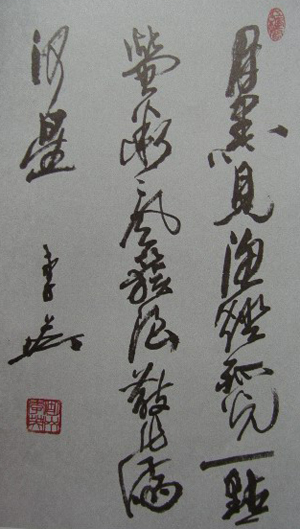 月黑見漁燈孤光一點
螢微微風簇浪散作滿
河星